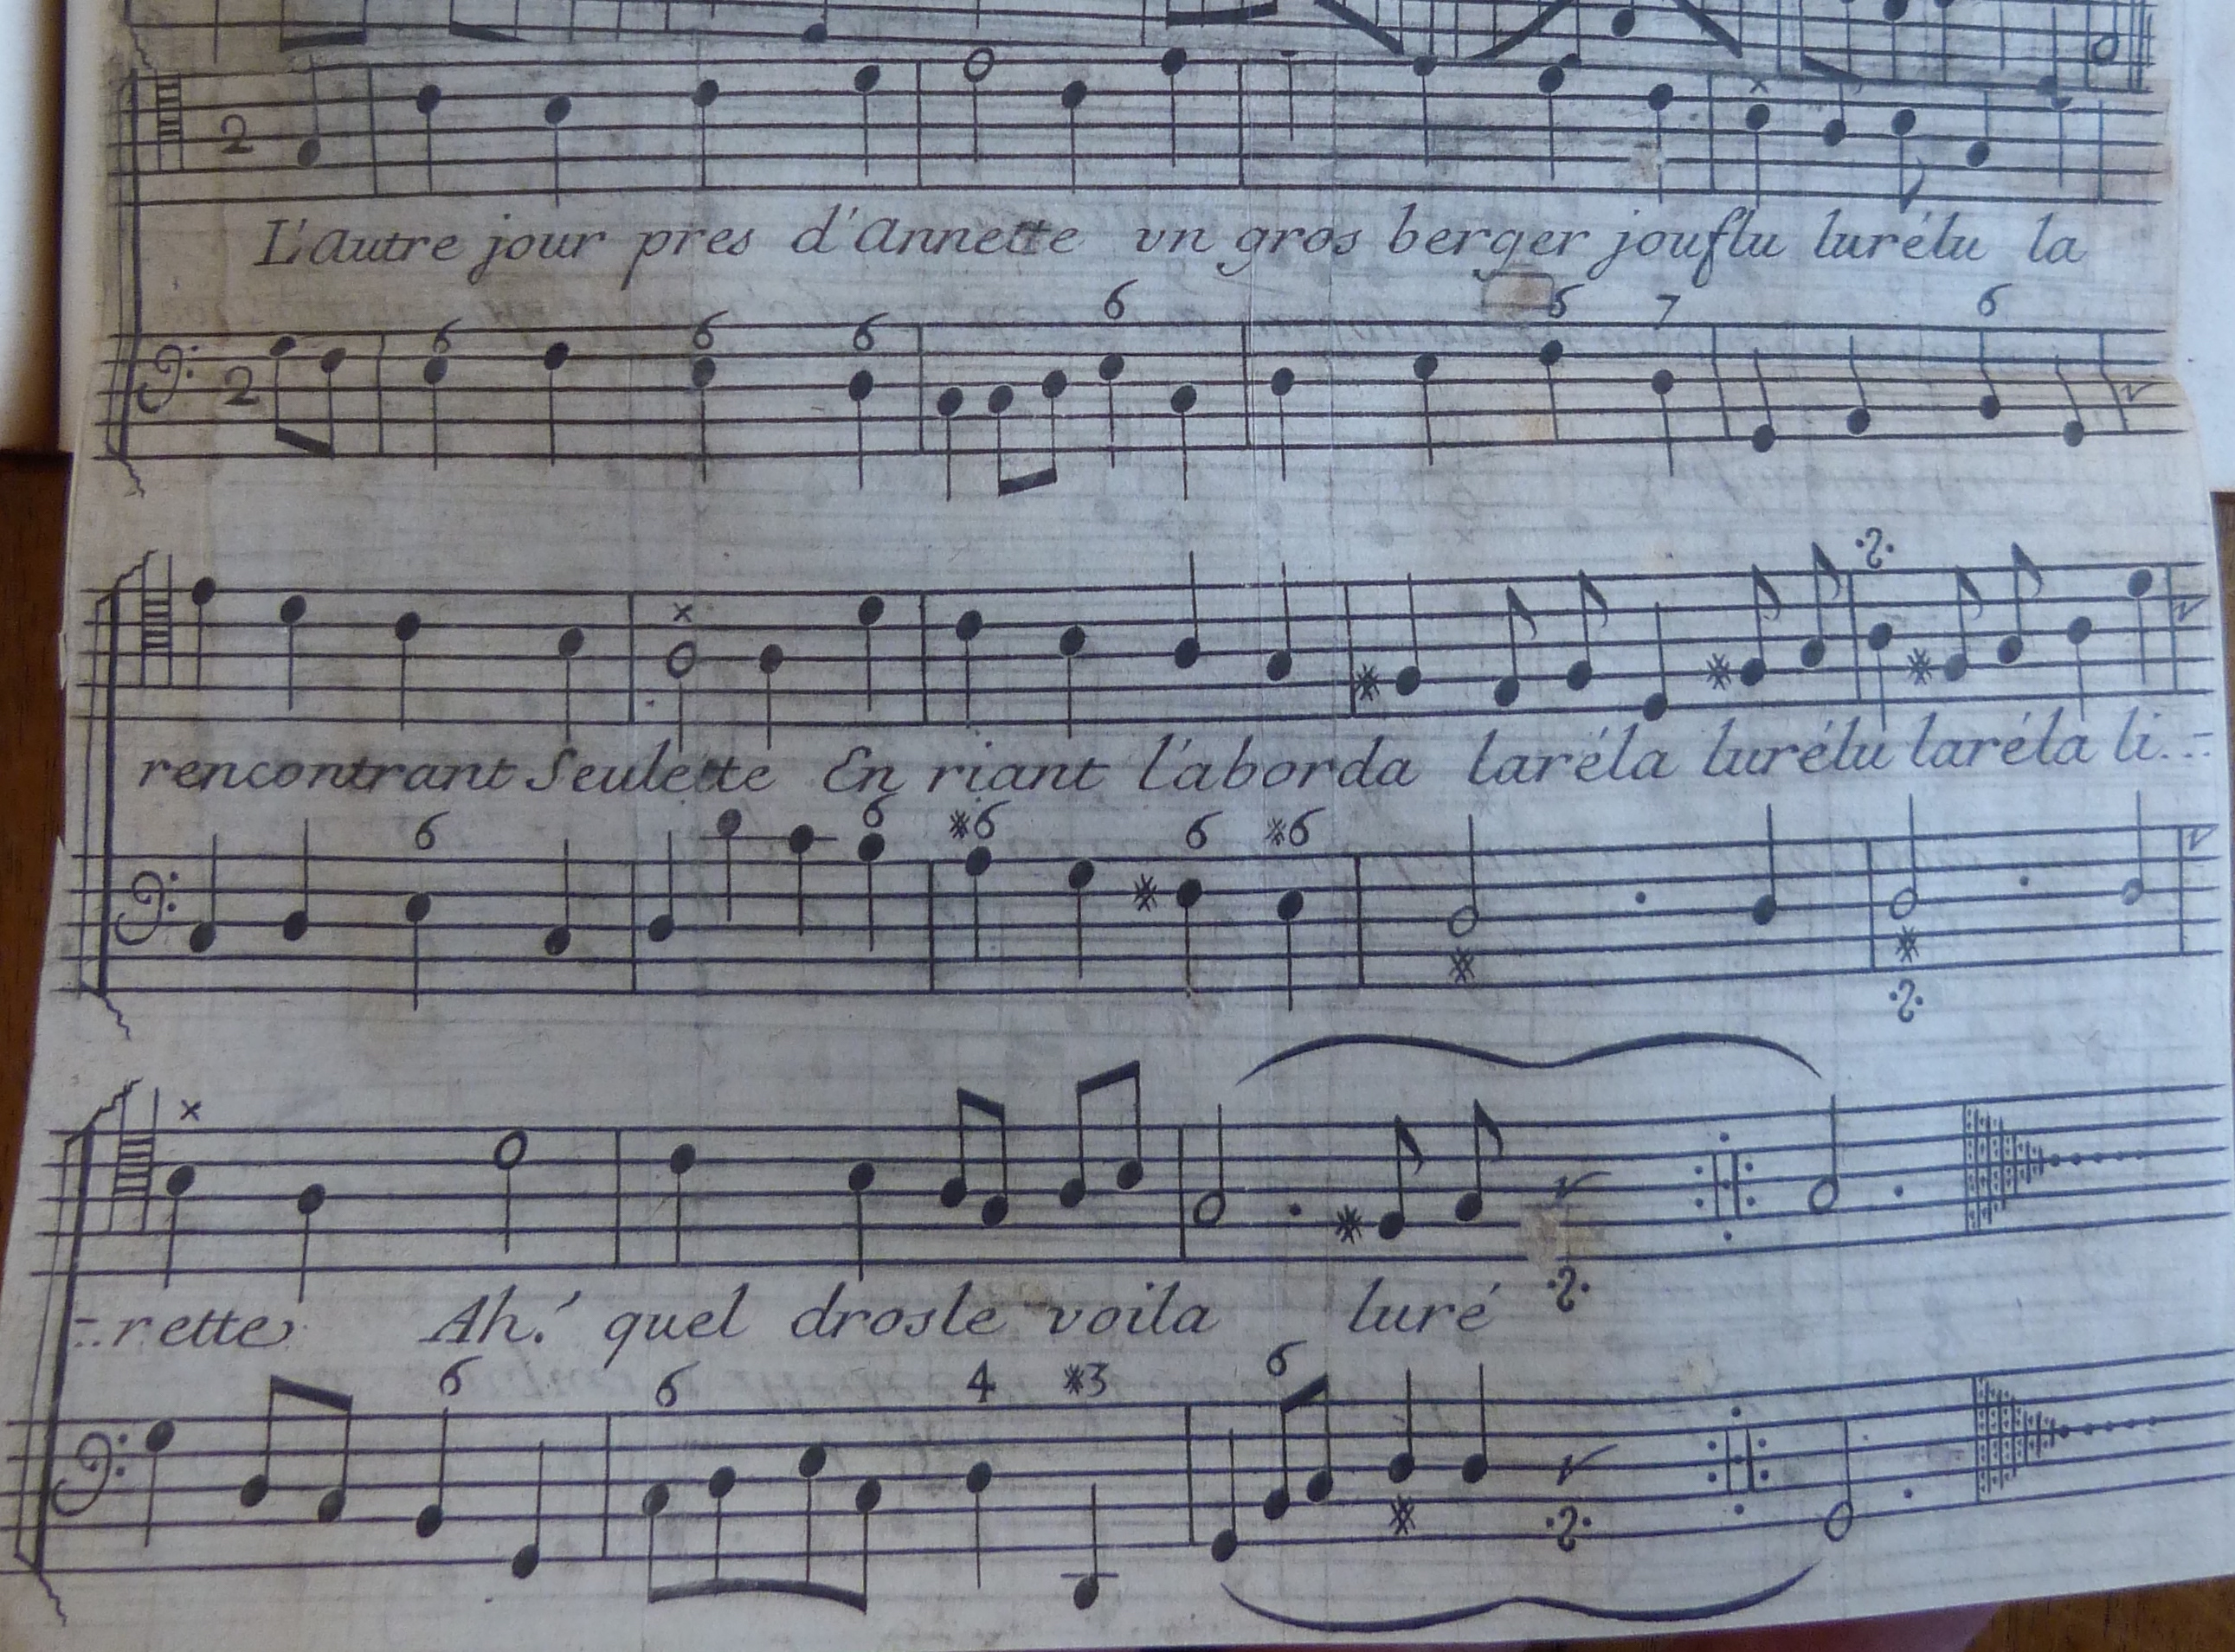 2
L'autre jour pres d'Annette vn gros berger jouflu lurélu la
6 7 6
6 6 6
2
rencontrant Seulette En riant l'aborda laréla lurélu laréla li..=
6 6 *6 6 *6
=..rette Ah! quel drosle voila luré
6 6 4 *3 6